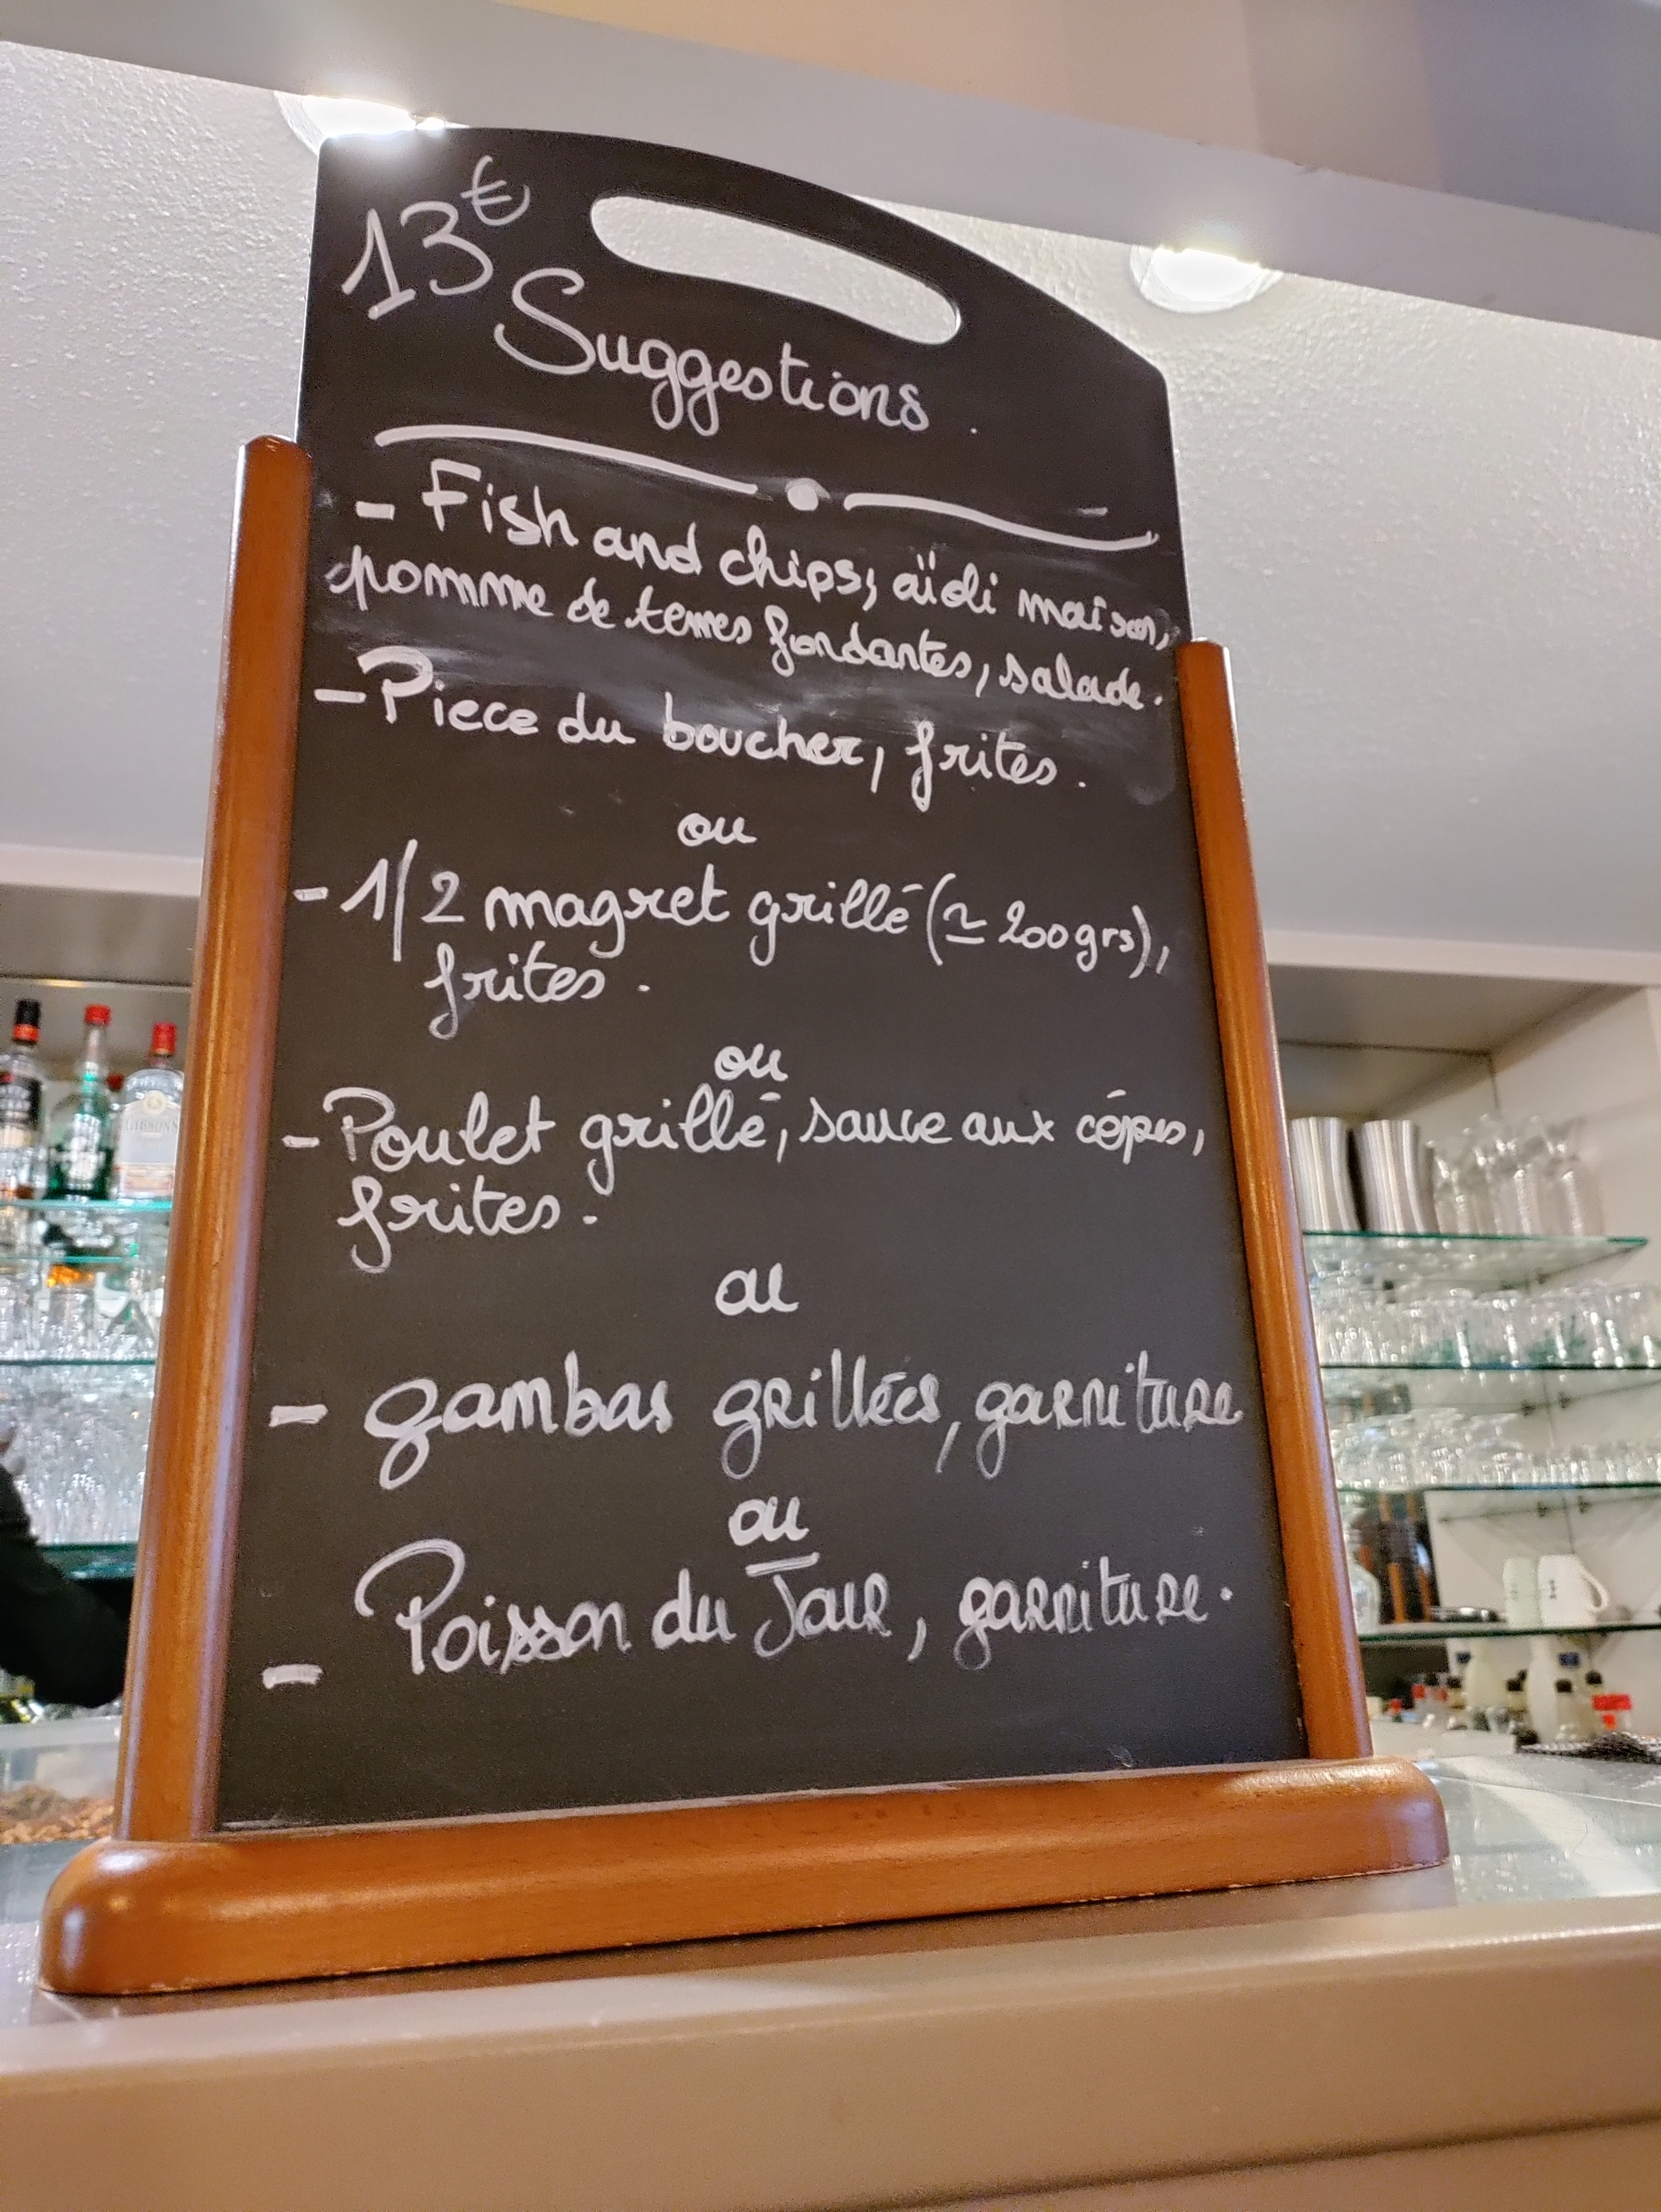 13€
Suggestions.
- Fish and chips, aïoli maison,
pomme de terres fondantes, salade.
- Piece du boucher, frites.
ou
- 1/2 magret grillé (≃ 200grs),
frites.
ou
- Poulet grillé, sauce aux cépes,
frites.
ou
- gambas grillées, garniture
ou
- Poisson du Jour, garniture.